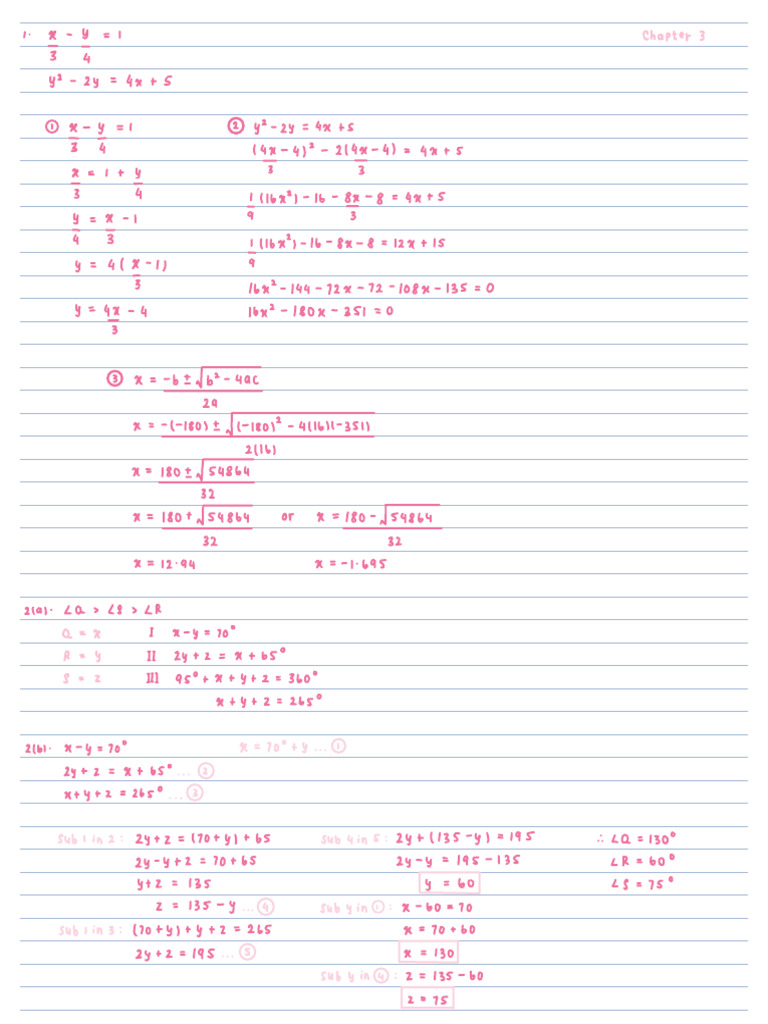 1. x/3 - y/4 = 1
Chapter 3
y² - 2y = 4x + 5
① x/3 - y/4 = 1
x/3 = 1 + y/4
y/4 = x/3 - 1
y = 4(x/3 - 1)
y = 4x/3 - 4
② y² - 2y = 4x + 5
(4x/3 - 4)² - 2(4x/3 - 4) = 4x + 5
1/9 (16x²) - 16 - 8x/3 - 8 = 4x + 5
1/9 (16x²) - 16 - 8x - 8 = 12x + 15
16x² - 144 - 72x - 72 - 108x - 135 = 0
16x² - 180x - 351 = 0
③ x = (-b ± √(b² - 4ac))/2a
x = (-(-180) ± √((-180)² - 4(16)(-351)))/2(16)
x = (180 ± √54864)/32
x = (180 + √54864)/32 or x = (180 - √54864)/32
x = 12.94 x = -1.695
2(a). ∠Q > ∠S > ∠R
Q = x I x - y = 70°
R = y II 2y + z = x + 65°
S = z III 95° + x + y + z = 360°
x + y + z = 265°
2(b). x - y = 70° x = 70° + y ... ①
2y + z = x + 65° ... ②
x + y + z = 265° ... ③
Sub 1 in 2: 2y + z = (70 + y) + 65
2y - y + z = 70 + 65
y + z = 135
z = 135 - y ... ④
Sub 1 in 3: (70 + y) + y + z = 265
2y + z = 195 ... ⑤
Sub 4 in 5: 2y + (135 - y) = 195
2y - y = 195 - 135
y = 60
Sub y in ①: x - 60 = 70
x = 70 + 60
x = 130
Sub y in ④: z = 135 - 60
z = 75
∴ ∠Q = 130°
∠R = 60°
∠S = 75°